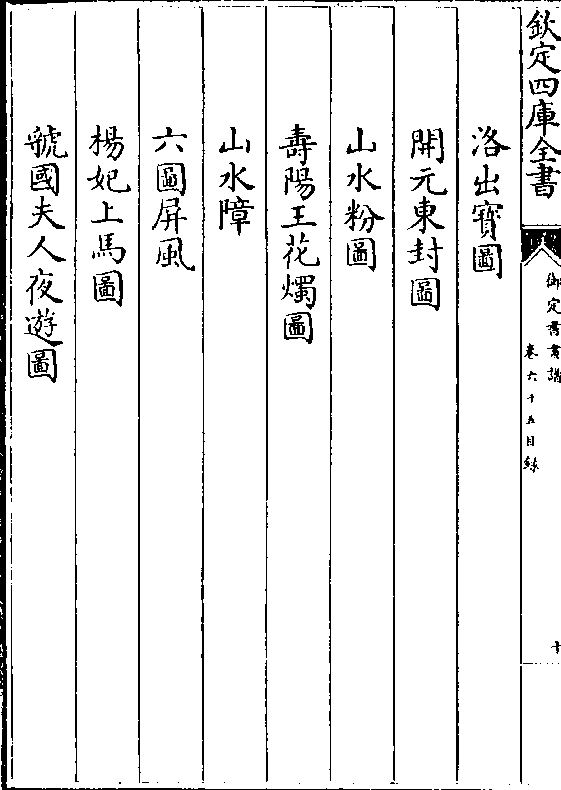 欽定四庫全書
御定書畫譜
卷六十五目錄
十
洛出寶圖
開元東封圖
山水粉圖
壽陽王花燭圖
山水障
六圖屏風
楊妃上馬圖
虢國夫人夜遊圖